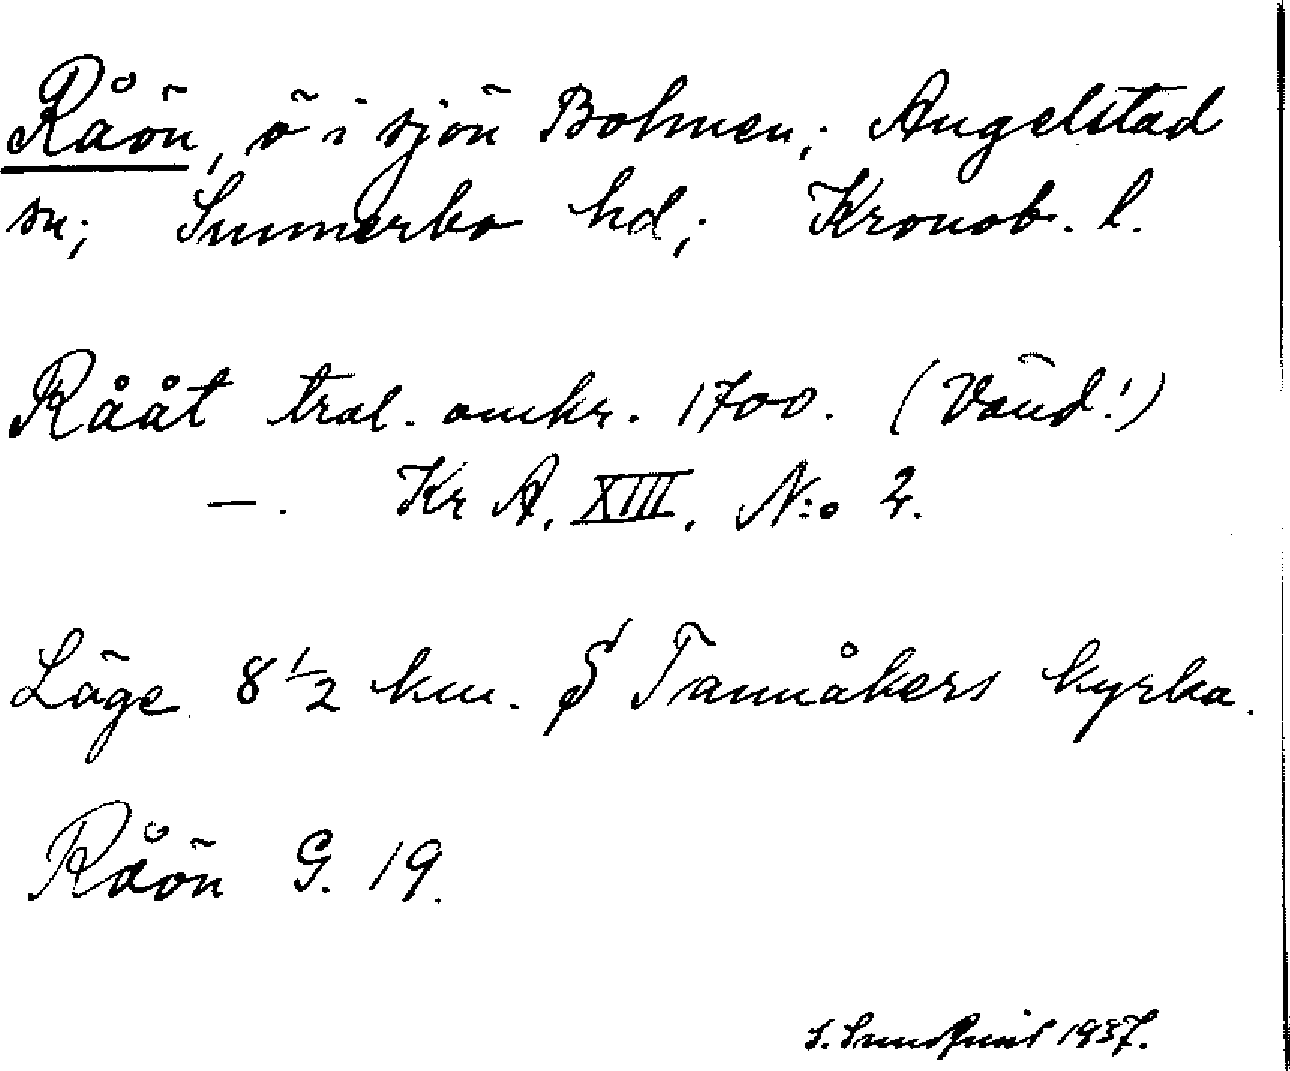 Råön, ö i sjön Bolmen; Angelstad
sn; Sunnerbo hd; Kronob. l.
Rååt tral. omkr. 1700. (Vänd!)
—. Kr A. XIII. N:o 2.
Läge 8 1/2 km. S Tannåkers kyrka.
Råön G. 19.
S. Sundqvist 1937.